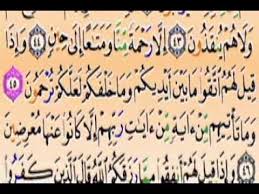 وَلَا هُمْ يُنقَذُونَ ٤٣ إِلَّا رَحْمَةً مِّنَّا وَمَتَٰعًا إِلَىٰ حِينٍ ٤٤ وَإِذَا
قِيلَ لَهُمُ ٱتَّقُوا۟ مَا بَيْنَ أَيْدِيكُمْ وَمَا خَلْفَكُمْ لَعَلَّكُمْ تُرْحَمُونَ ٤٥
وَمَا تَأْتِيهِم مِّنْ ءَايَةٍ مِّنْ ءَايَٰتِ رَبِّهِمْ إِلَّا كَانُوا۟ عَنْهَا مُعْرِضِينَ
٤٦ وَإِذَا قِيلَ لَهُمْ أَنفِقُوا۟ مِمَّا رَزَقَكُمُ ٱللَّهُ قَالَ ٱلَّذِينَ كَفَرُوا۟